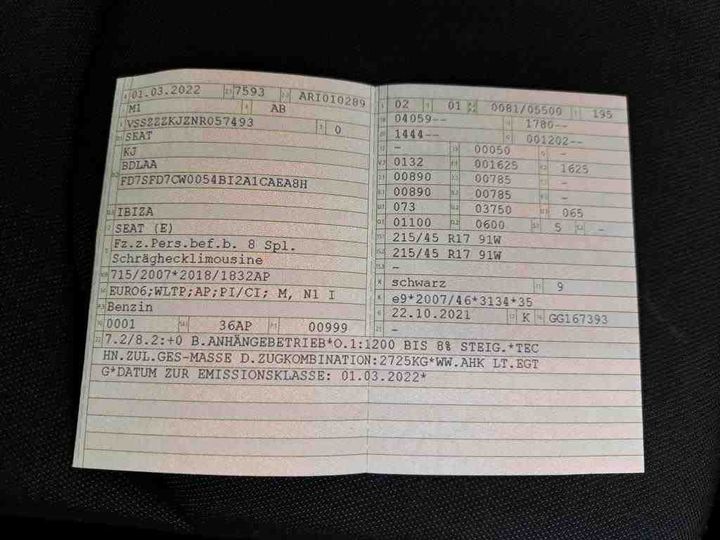 01.03.2022 7593 ARI010289
M1 AB
VSSZZZKJZNR057493 0
SEAT
KJ
BDLAA
FD7SFD7CW0054BI2A1CAEA8H
IBIZA
SEAT (E)
Fz.z.Pers.bef.b. 8 Spl.
Schräghecklimousine
715/2007*2018/1832AP
EURO6;WLTP;AP;PI/CI; M, N1 I
Benzin
0001 36AP 00999
02 01 0081/05500 195
04059-- 1780--
1444-- 001202--
- 00050 -
0132 001625 1625
00890 00785 -
00890 00785 -
073 03750 065
01100 0600 5 -
215/45 R17 91W
215/45 R17 91W
-
schwarz 9
e9*2007/46*3134*35
22.10.2021 K GG167393
-
7.2/8.2:+0 B.ANHÄNGEBETRIEB*O.1:1200 BIS 8% STEIG.*TEC
HN.ZUL.GES-MASSE D.ZUGKOMBINATION:2725KG*WW.AHK LT.EGT
G*DATUM ZUR EMISSIONSKLASSE: 01.03.2022*